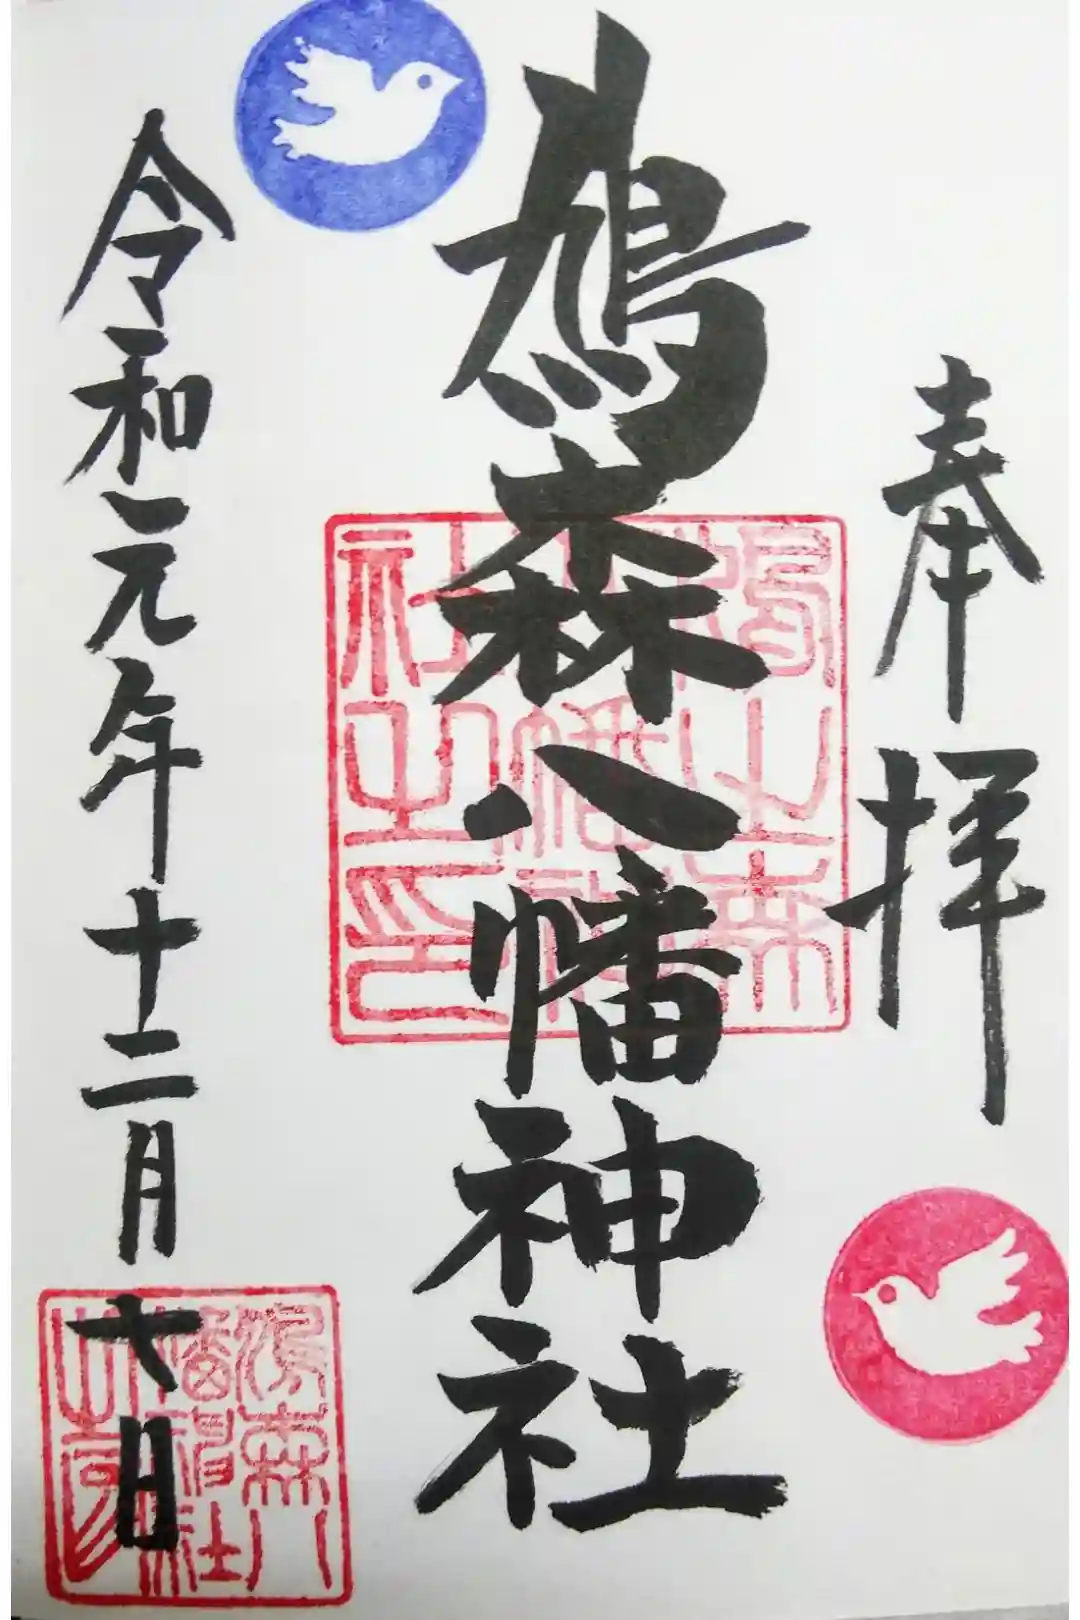 奉拝
鳩森八幡神社
令和元年十二月七日
鳩之森
八幡神
社之印
鳩森八
幡神社